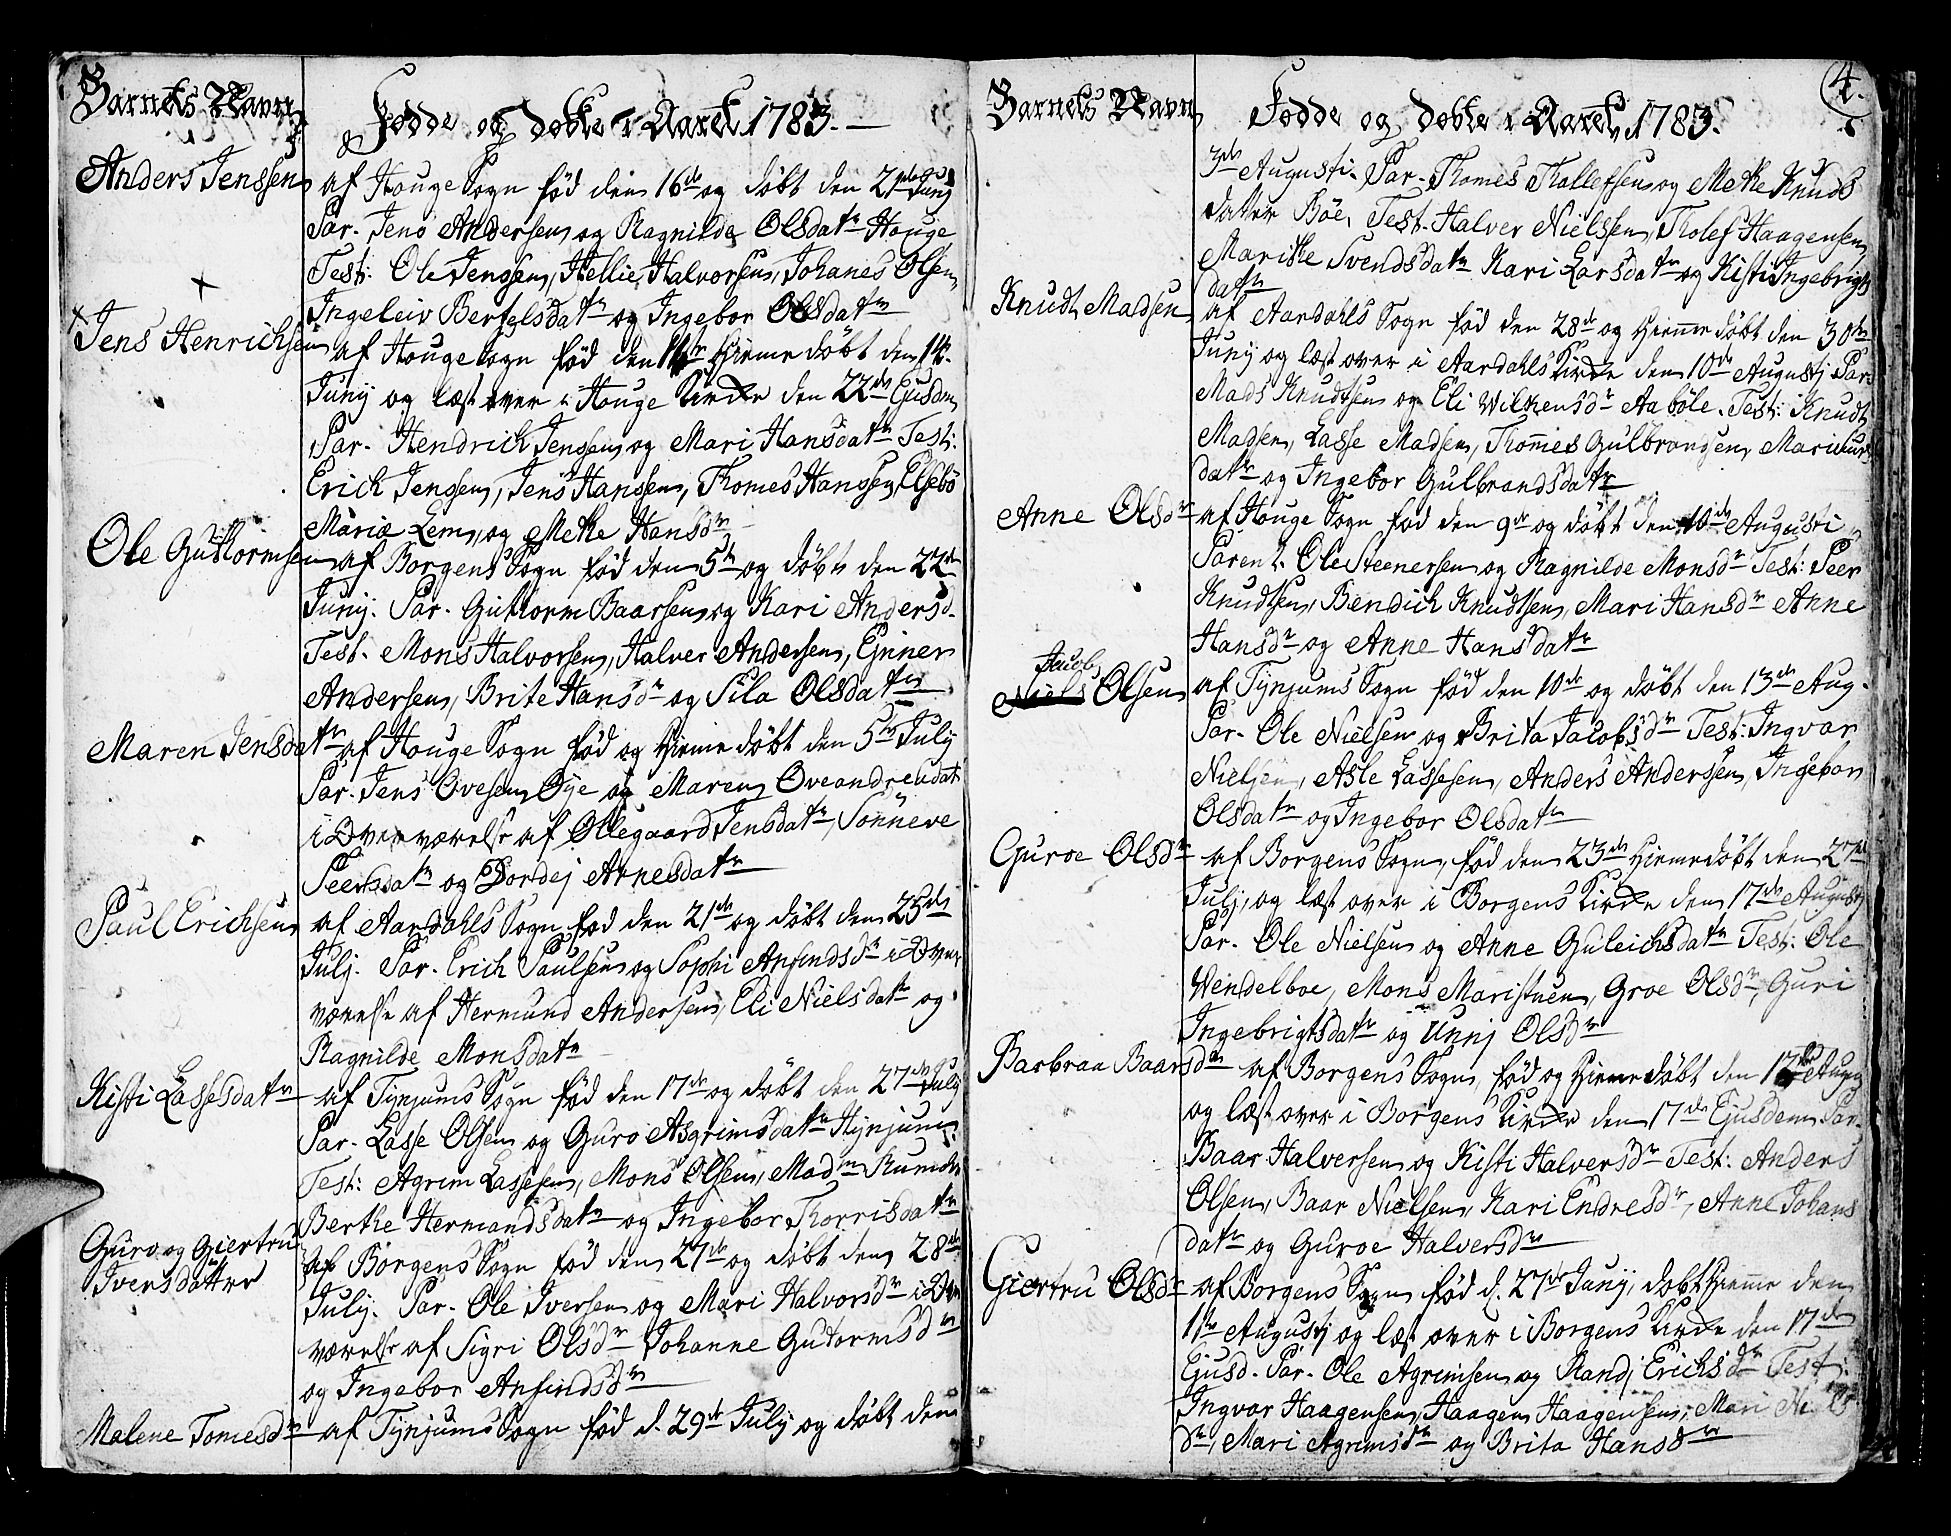 Barnets Navn
Fødde og døbte i Aaret 1783.
Anders Jenssen
af Houge Sogn fød den 16de og døbt den 21de Junij
Par. Jens Andersen og Ragnilde Olsdatr Houge
Test: Ole Jenssen, Hellie Halvorsen, Johanes Olsen
Ingeleiv Bertelsdatr og Ingebor Olsdatr
Jens Henrichsen
af Houge Sogn fød den Hieme døbt den 14.
Junij og læst over i Houge Kirche den 22de Ejusdem
Par. Hendrich Jenssen og Mari Hansdatr Test:
Erich Jenssen, Jens Hanssen, Thomes Hanssen, Elsebe
Mariæ Lem, og Mette Hansdr
Ole Guttormsen
af Borgens Sogn fød den 5te og døbt den 22de
Junij. Par. Guttorm Baarsen og Kari Andersd.
Test. Mons Halvorsen, Halver Andersen, Ejnner
Andersen, Brite Hansdr og Sila Olsdatr
Maren Jensdatr
af Houge Sogn fød og Hieme døbt den 5te July
Par. Jens Ovesen Øye og Maren Oveandreædat
i Overværelse af Ollegaard Jensdatr, Sønneve
Peersdatr og Dordej Arnesdatr
Paul Erichsen
af Aardahls Sogn fød den 21de og døbt den 25de
Julj. Par. Erich Paulsen og Sophi Anfindsdr i Over
værelse af Hermund Andersen, Eli Nielsdatr og
Ragnilde Monsdatr
Kisti Lassesdatr
af Tynjums Sogn fød den 17de og døbt den 27de July
Par. Lasse Olsen og Guro Asgrimsdatr Hynjum
Test: Agrim Lassesen, Mons Olsen, Madme Rumohr
Berthe Hermandsdatr og Ingebor Thorrisdatr
Guro og Giertru
Iversdatter
af Borgens Sogn fød den 27de og døbt den 28de
July. Par. Ole Iversen og Mari Halvorsdr i Over
værelse af Sigri Olsdr Johanne Gutormsdr
og Ingebor Anfindsdr
Malene Tomesdr
af Tynjums Sogn fød d. 29de July og døbt den
4.
Barnets Navn
Fødde og døbte i Aaret 1783.
3de Augusti. Par. Thomes Thollefsen og Mette Knuds
datter Böe, Test. Halver Nielssen, Tholef Haagensen
Marithe Svendsdatr Kari Larsdatr og Kisti Ingebrigts
datr
Knudt Madsen
af Aardahls Sogn fød den 28de og Hieme døbt den 30te
Junij og læst over i Aardahls Kirche den 10de Augustj Par.
Mads Knudtsen og Eli Wilkensdr Aaböle. Test: Knudt
Madsen, Lasse Madsen, Thomes Gulbrandsen, Mari
datr og Ingebor Gulbrandsdatr
Anne Olsdr
af Houge Sogn fød den 9de og døbt den 10de Augusti
Parent. Ole Steenersen og Ragnilde Monsdr Test: Peer
Knudtsen, Bendich Knudtsen, Mari Hansdr Anne
Hansdr og Anne Hansdatr
Jacob
Niels Olsen
af Tynjums Sogn fød den 10de og døbt den 13de Aug.
Par. Ole Nielsen og Brita Jacobsdr Test: Ingvar
Nielsen, Asle Lassesen, Anders Anderssen, Ingebor
Olsdatr og Ingebor Olsdatr
Guroe Olsdr
af Borgens Sogn, fød den 23de Hieme døbt den 27de
Julj, og læst over i Borgens Kirche den 17de Augustj
Par. Ole Nielsen og Anne Guleichsdatr Test: Ole
Wendelboe, Mons Maristuen, Groe Olsdr, Guri
Ingebrigtsdatr og Unnj Olsdr
Barbraa Baarsdr
af Borgens Sogn, fød og Hieme døbt den Aug
og læst over i Borgens Kirche den 17de Ejusdem Par.
Baar Halversen og Kisti Halversdr Test: Anders
Olsen, Baar Nielsen, Kari Endresdr, Anne Johans
datr og Guroe Halversdr
Giertru Olsdr
af Borgens Sogn fød d. 27de Junij, døbt Hieme den
11te Augustj og læst over i Borgens Kirche den 17de
Ejusd. Par. Ole Agrimsen og Randj Erichsdr Test:
Ingvar Haagensen, Haagen Haagensen, Mari Niels
dr, Mari Agrimsdr og Brita Hansdr